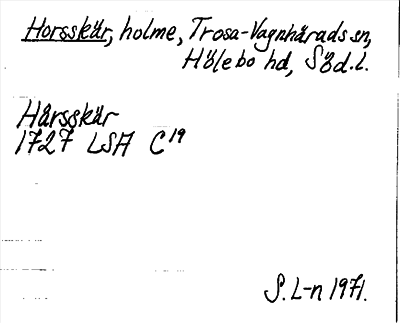 Horsskär, holme, Trosa-Vagnhärads sn,
Hölebo hd, Söd.l.
Hårsskär
1727 LSA C19
S. L-n 1971.